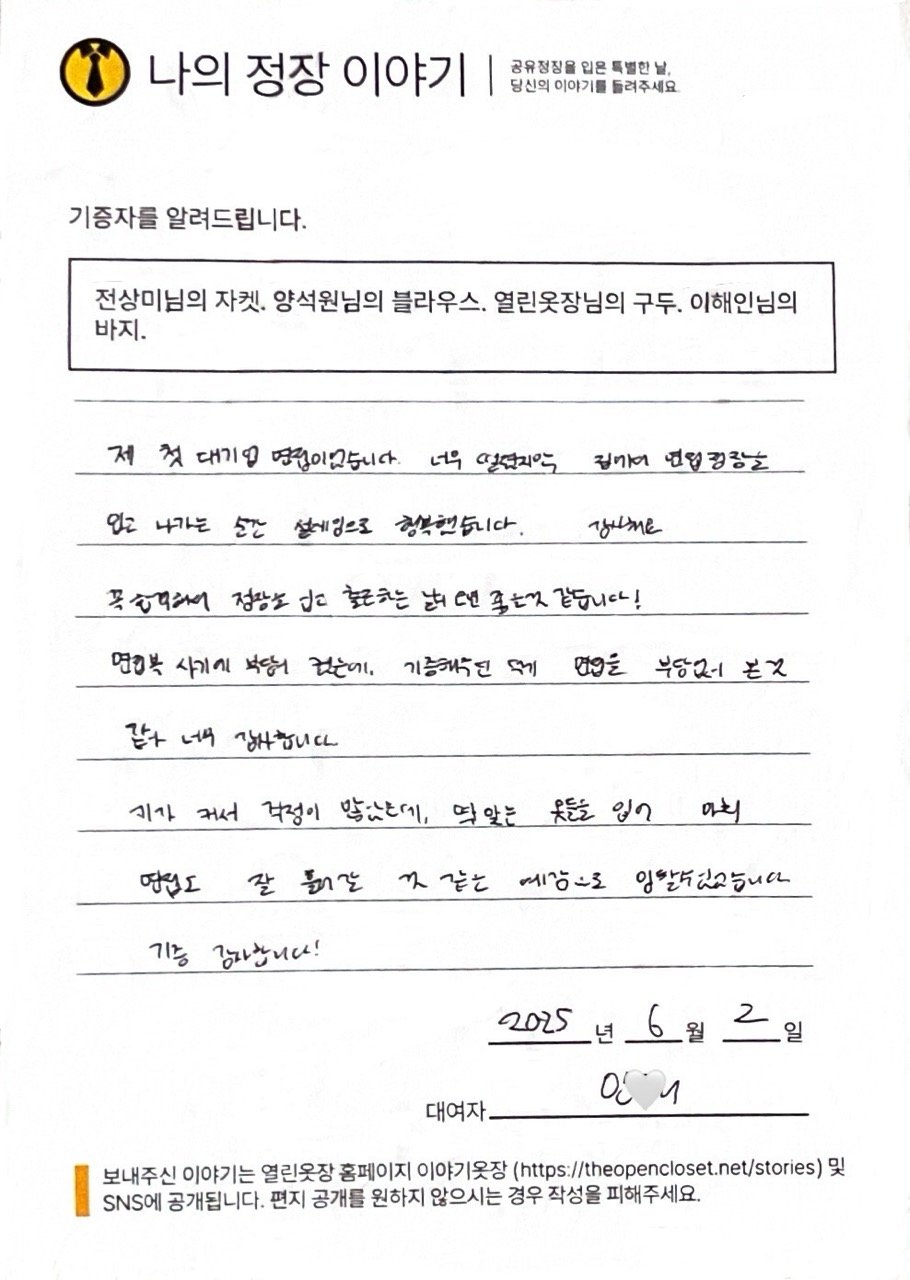 나의 정장 이야기
공유정장을 입은 특별한 날,
당신의 이야기를 들려주세요.
기증자를 알려드립니다.
전상미님의 자켓. 양석원님의 블라우스. 열린옷장님의 구두. 이해인님의
바지.
제 첫 대기업 면접이었습니다. 너무 떨렸지만 면접정장을
입고 나가는 순간 설레임으로 행복했습니다. 감사해요
꼭 합격하여 정장을 입고 출근하는 날이 오면 좋을것 같습니다!
면접복 사기에 부담이 컸는데, 기증해주신 덕에 면접을 부담없이 본 것
같아 너무 감사합니다
키가 커서 걱정이 많았는데, 딱 맞는 옷들을 입어 마치
면접도 잘 풀리 갈 것 같은 예감으로 임할수있었습니다
기증 감사합니다!
2025 년 6 월 2 일
대여자
보내주신 이야기는 열린옷장 홈페이지 이야기옷장 (https://theopencloset.net/stories) 및
SNS에 공개됩니다. 편지 공개를 원하지 않으시는 경우 작성을 피해주세요.